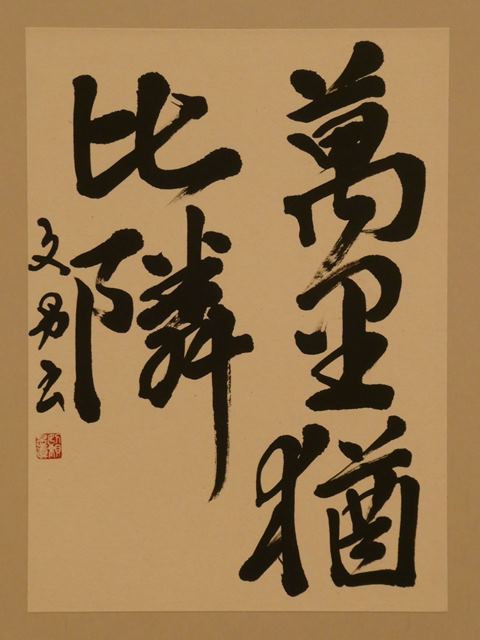 萬里猶
比隣
文男書